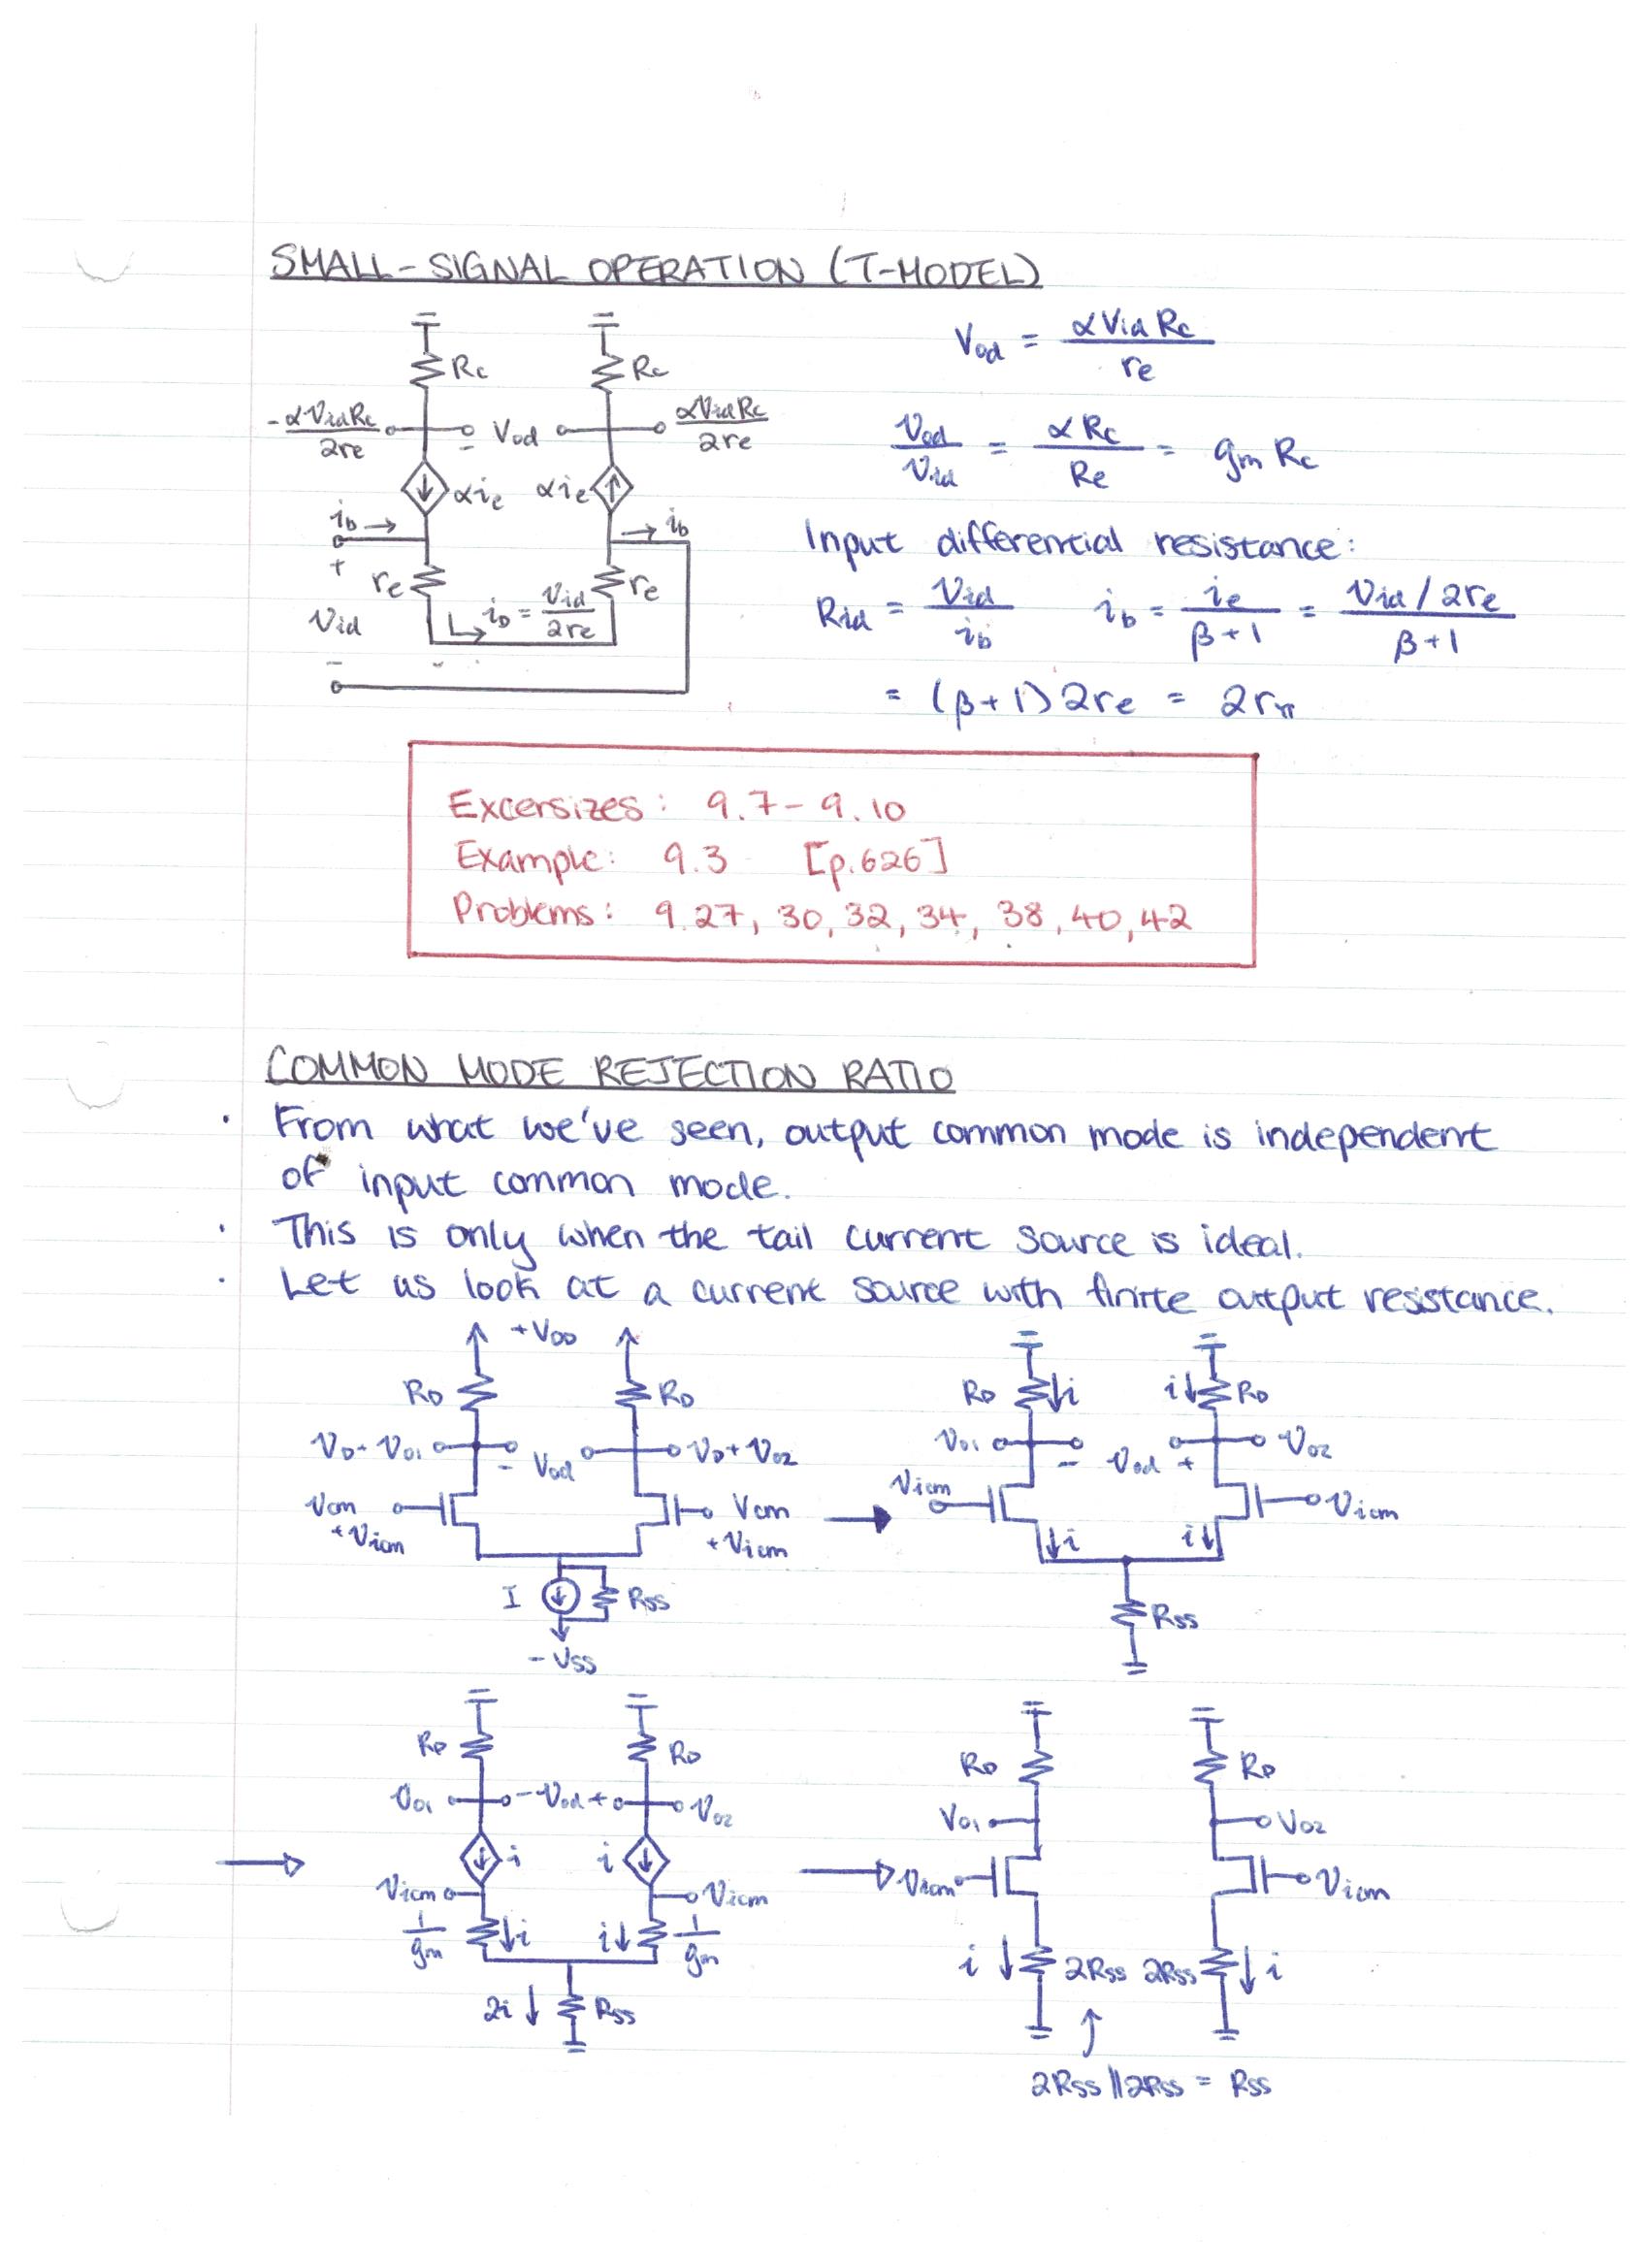 SMALL-SIGNAL OPERATION (T-MODEL)
Rc Rc
-αVidRc/2re - Vod αVidRc/2re
αie αie
ib → → ib
+ re re
Vid io = Vid/2re
-
Vod = αVid Rc / re
Vod/Vid = αRc/Re = gm Rc
Input differential resistance:
Rid = Vid/ib ib = ie/(β+1) = (Vid/2re)/(β+1)
= (β+1)2re = 2rπ
Excersizes: 9.7-9.10
Example: 9.3 [p.626]
Problems: 9.27, 30, 32, 34, 38, 40, 42
COMMON MODE REJECTION RATIO
· From what we've seen, output common mode is independent
of input common mode.
· This is only when the tail current source is ideal.
· Let us look at a current source with finite output resistance.
+VDD
RD RD
VD+Vo1 - Vod VD+Vo2
Vcm +Vicm Vcm +Vicm
I RSS
-VSS
RD ↓i i↓ RD
Vo1 - Vod + Vo2
Vicm Vicm
↓i i↓
RSS
RD RD
Vo1 -Vod+ Vo2
i i
Vicm Vicm
1/gm ↓i i↓ 1/gm
2i ↓ RSS
RD RD
Vo1 Vo2
Vicm Vicm
i ↓ 2RSS 2RSS ↓ i
2RSS||2RSS = RSS